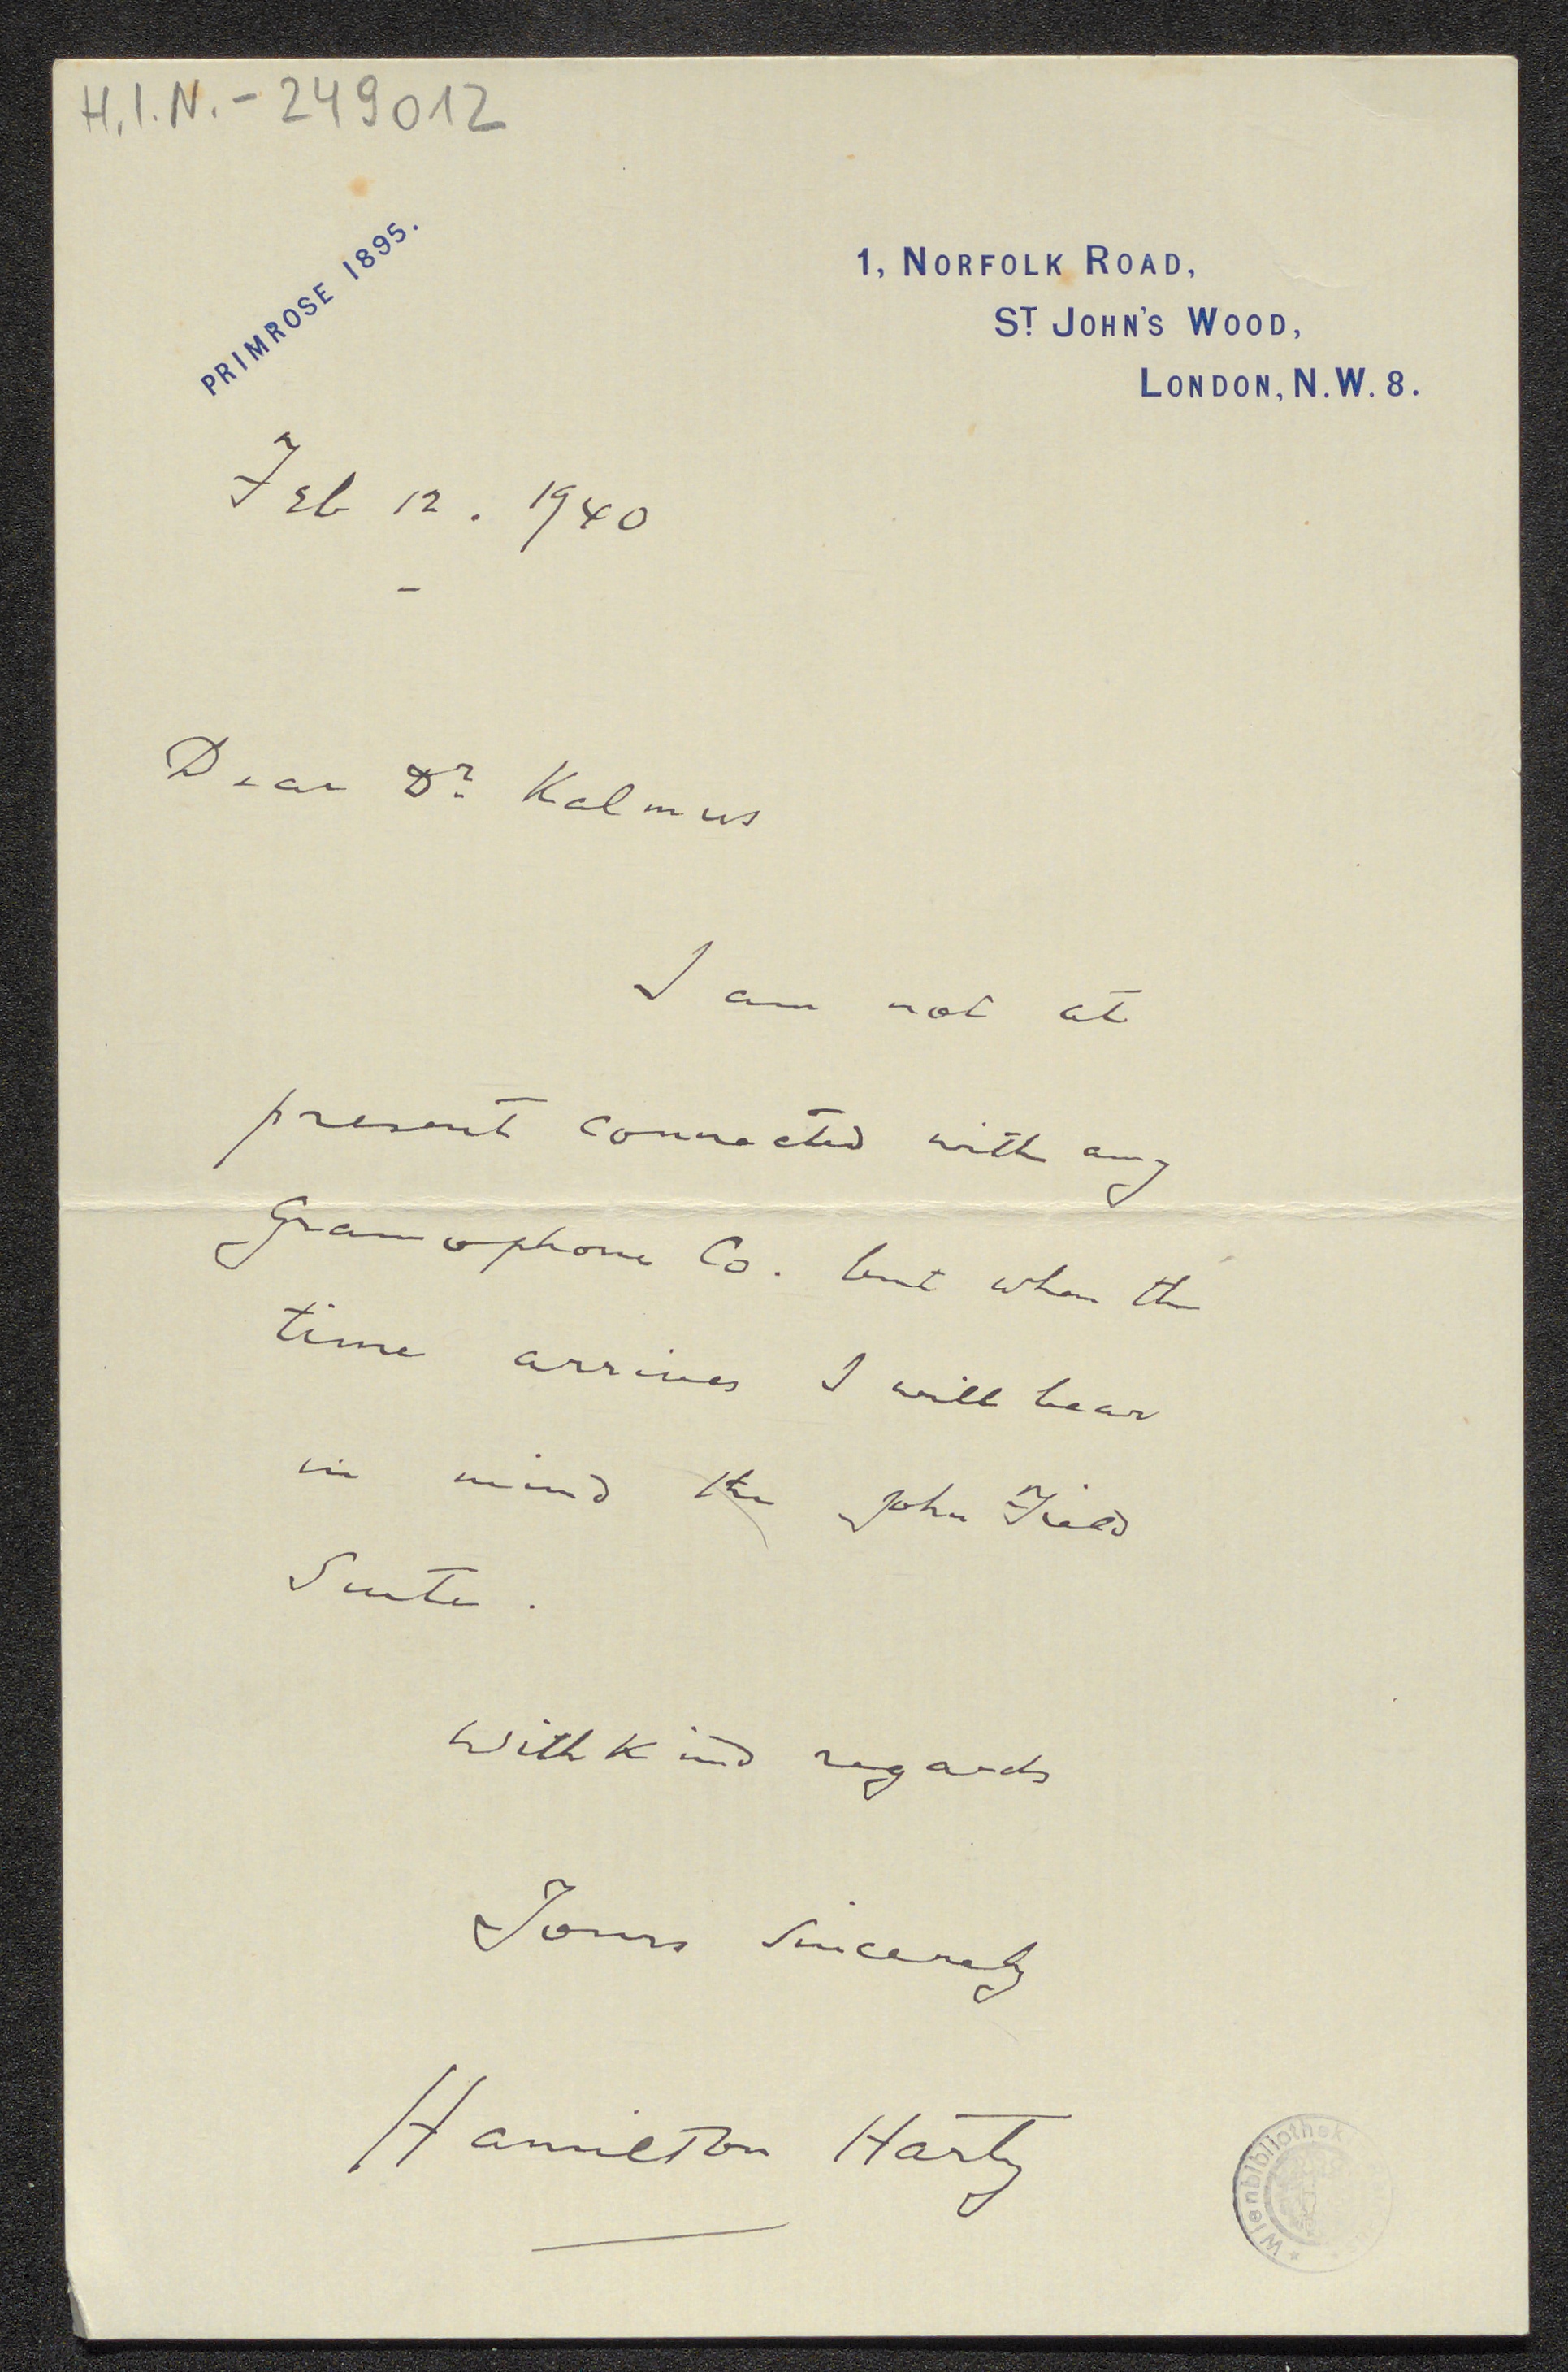 H.I.N.-249012
PRIMROSE 1895.
1, NORFOLK ROAD,
ST JOHN'S WOOD,
LONDON, N.W. 8.
Feb 12. 1940
Dear Dr Kalmus
I am not at
present connected with any
Gramophone Co. but when the
time arrives I will bear
in mind the John Field
Suite.
With kind regards
Yours sincerely
Hamilton Harty
Wienbibliothek